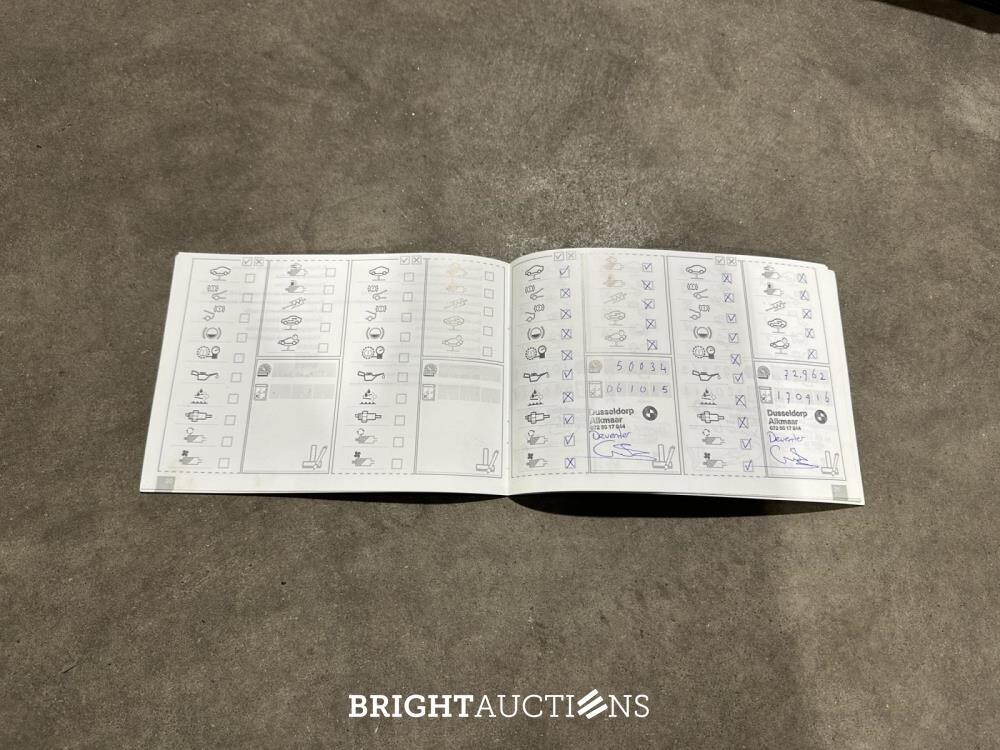 50034
061015
Dusseldorp
Alkmaar
072 55 17 844
Deventer
72.962
170916
Dusseldorp
Alkmaar
072 55 17 844
Deventer
BRIGHTAUCTIONS